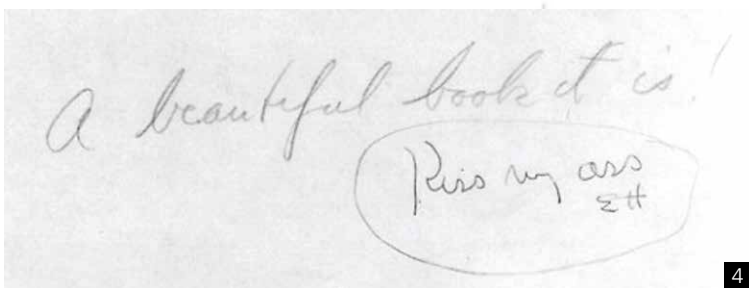 A beautiful book it is!
Kiss my ass
EH
4